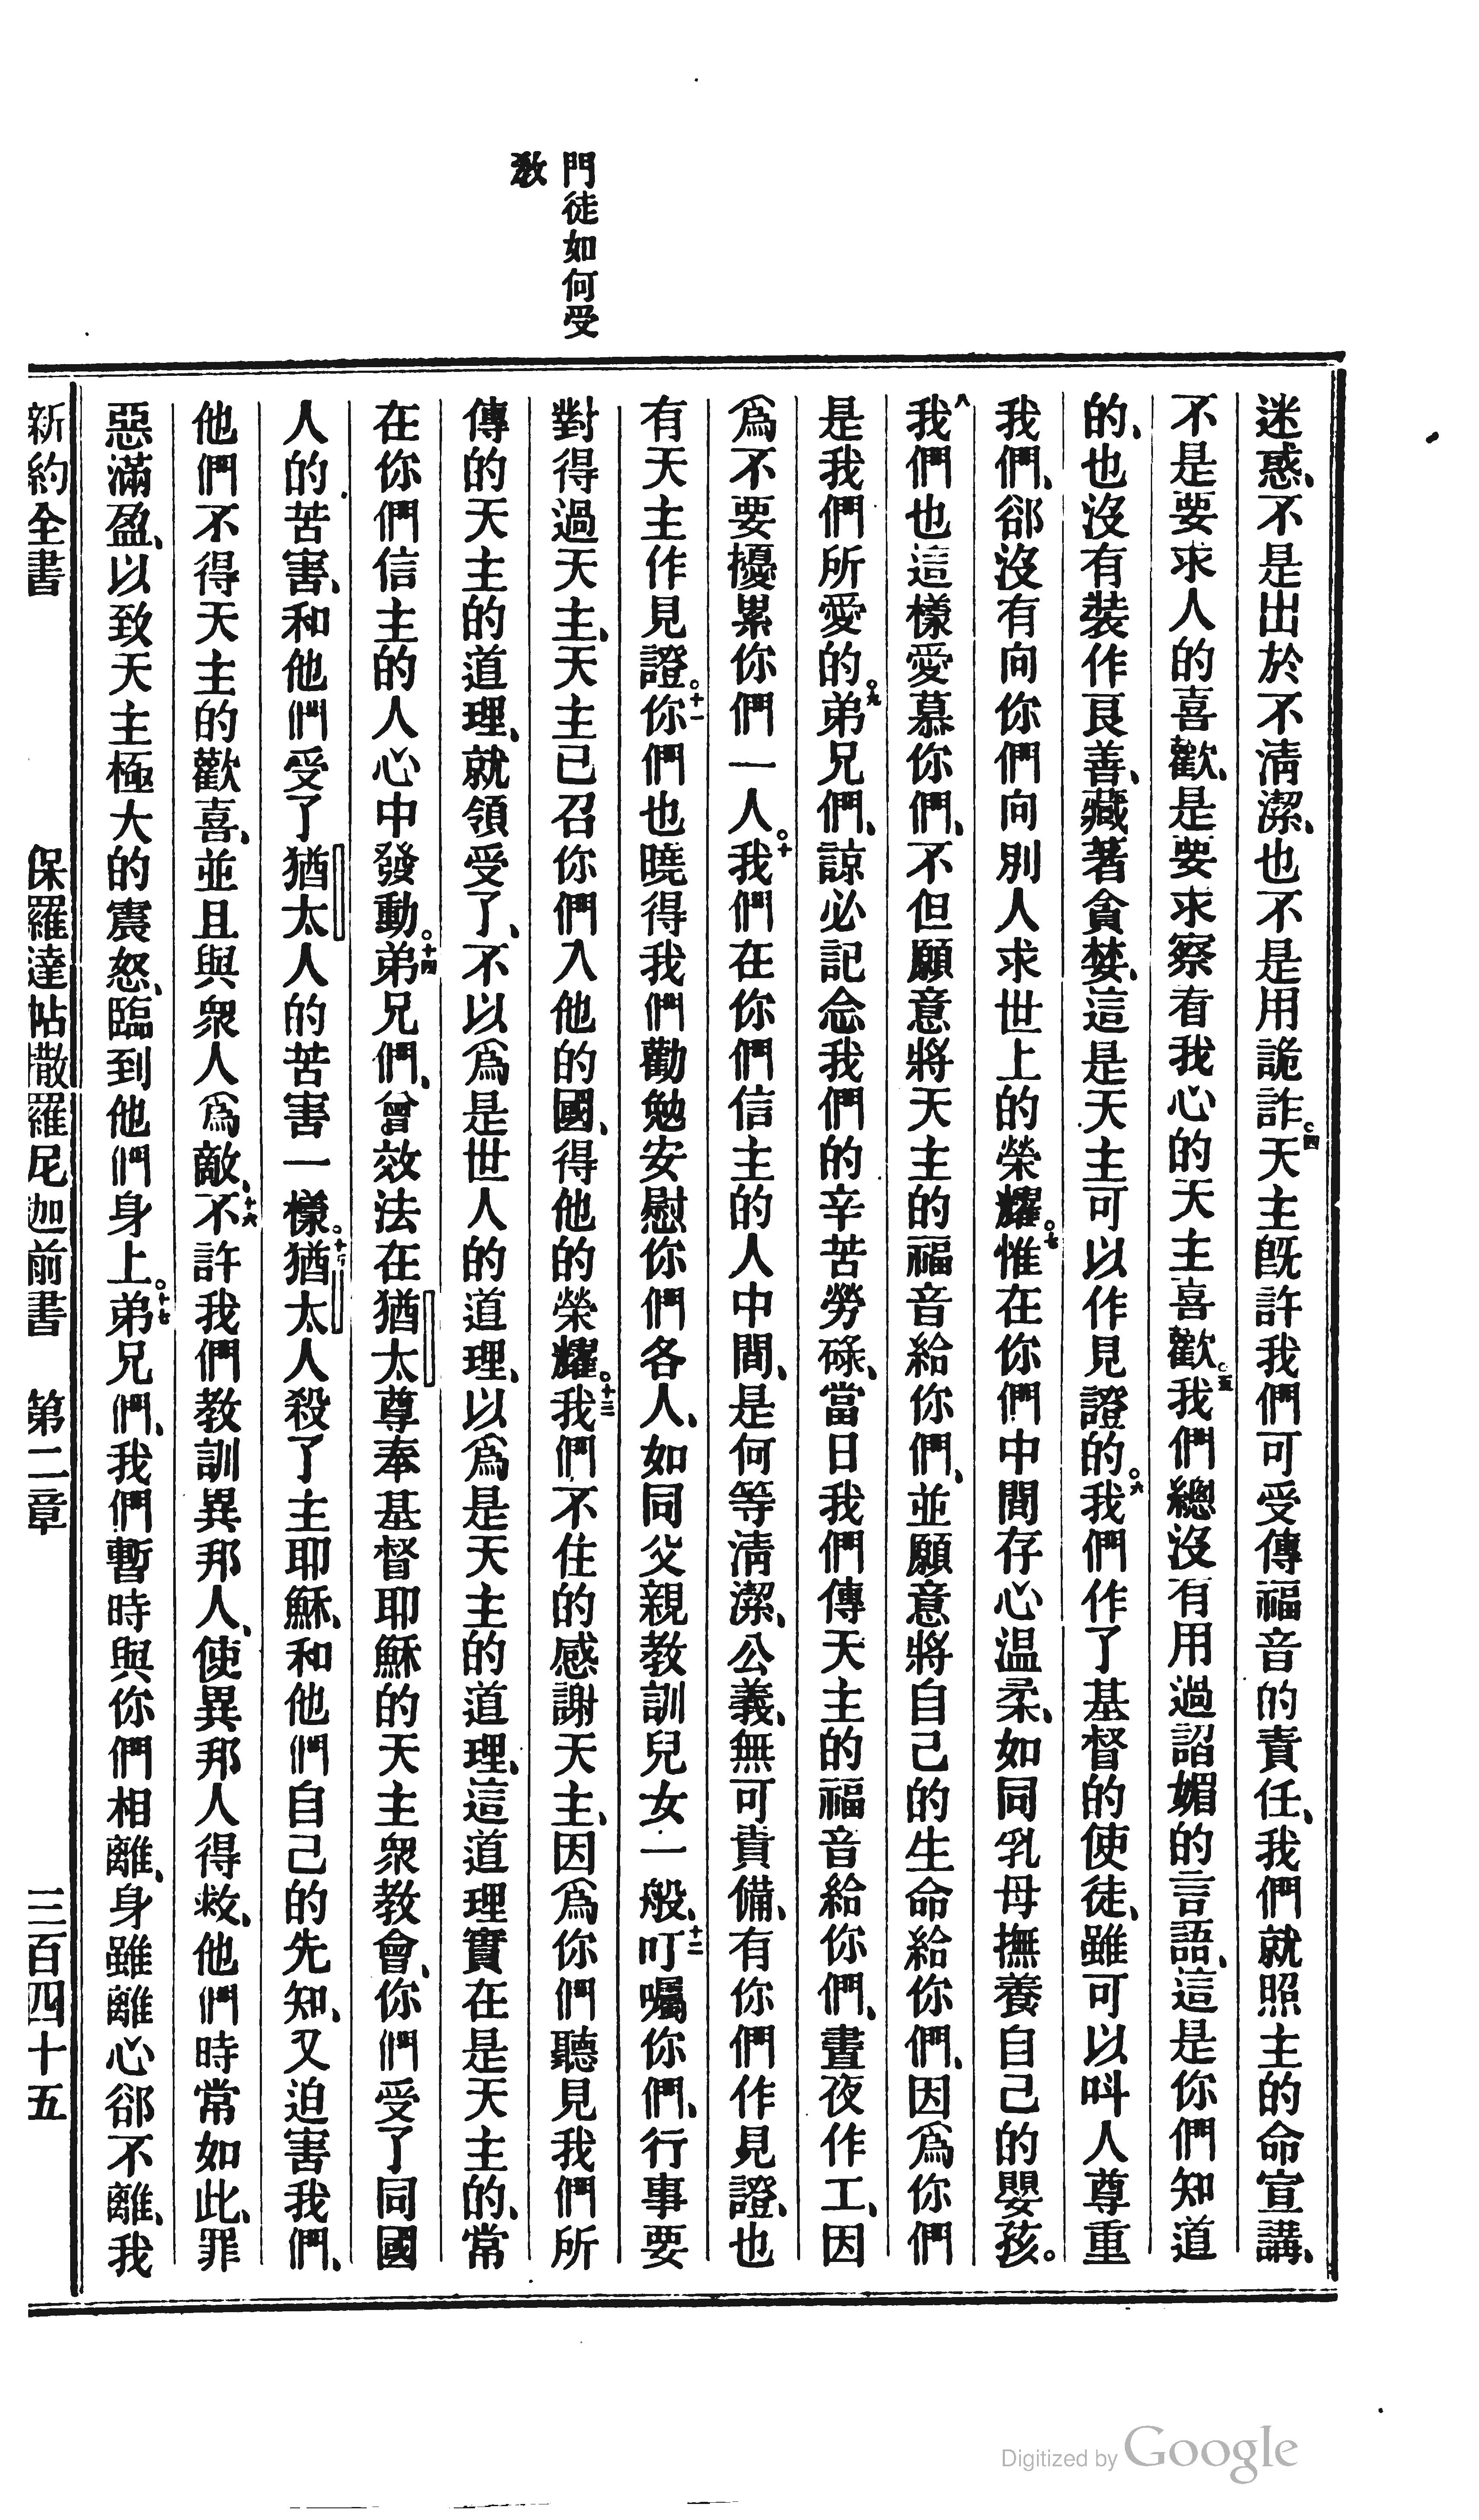 門徒如何受
教
迷惑、不是出於不淸潔、也不是用詭詐。四天主旣許我們可受傳福音的責任、我們就照主的命宣講、
不是要求人的喜歡、是要求察看我心的天主喜歡。五我們總沒有用過諂媚的言語、這是你們知道
的、也沒有裝作良善、藏著貪婪、這是天主可以作見證的。六我們作了基督的使徒、雖可以叫人尊重
我們、郤沒有向你們向別人求世上的榮耀。七惟在你們中間存心温柔、如同乳母撫養自己的嬰孩。
八我們也這樣愛慕你們、不但願意將天主的福音給你們、並願意將自己的生命給你們、因爲你們
是我們所愛的。九弟兄們、諒必記念我們的辛苦勞碌、當日我們傳天主的福音給你們、晝夜作工、因
爲不要擾累你們一人。十我們在你們信主的人中間、是何等淸潔、公義、無可責備、有你們作見證、也
有天主作見證。十一你們也曉得我們勸勉安慰你們各人、如同父親教訓兒女一般、十二叮囑你們、行事要
對得過天主、天主已召你們入他的國、得他的榮耀。十三我們不住的感謝天主、因爲你們聽見我們所
傳的天主的道理、就領受了、不以爲是世人的道理、以爲是天主的道理、這道理實在是天主的、常
在你們信主的人心中發動。十四弟兄們、曾效法在猶太尊奉基督耶穌的天主衆教會、你們受了同國
人的苦害、和他們受了猶太人的苦害一樣。十五猶太人殺了主耶穌、和他們自己的先知、又迫害我們、
他們不得天主的歡喜、並且與衆人爲敵、十六不許我們教訓異邦人、使異邦人得救、他們時常如此、罪
惡滿盈、以致天主極大的震怒、臨到他們身上。十七弟兄們、我們暫時與你們相離、身雖離心郤不離、我
新約全書　保羅達帖撒羅尼迦前書　第二章　三百四十五
Digitized by Google